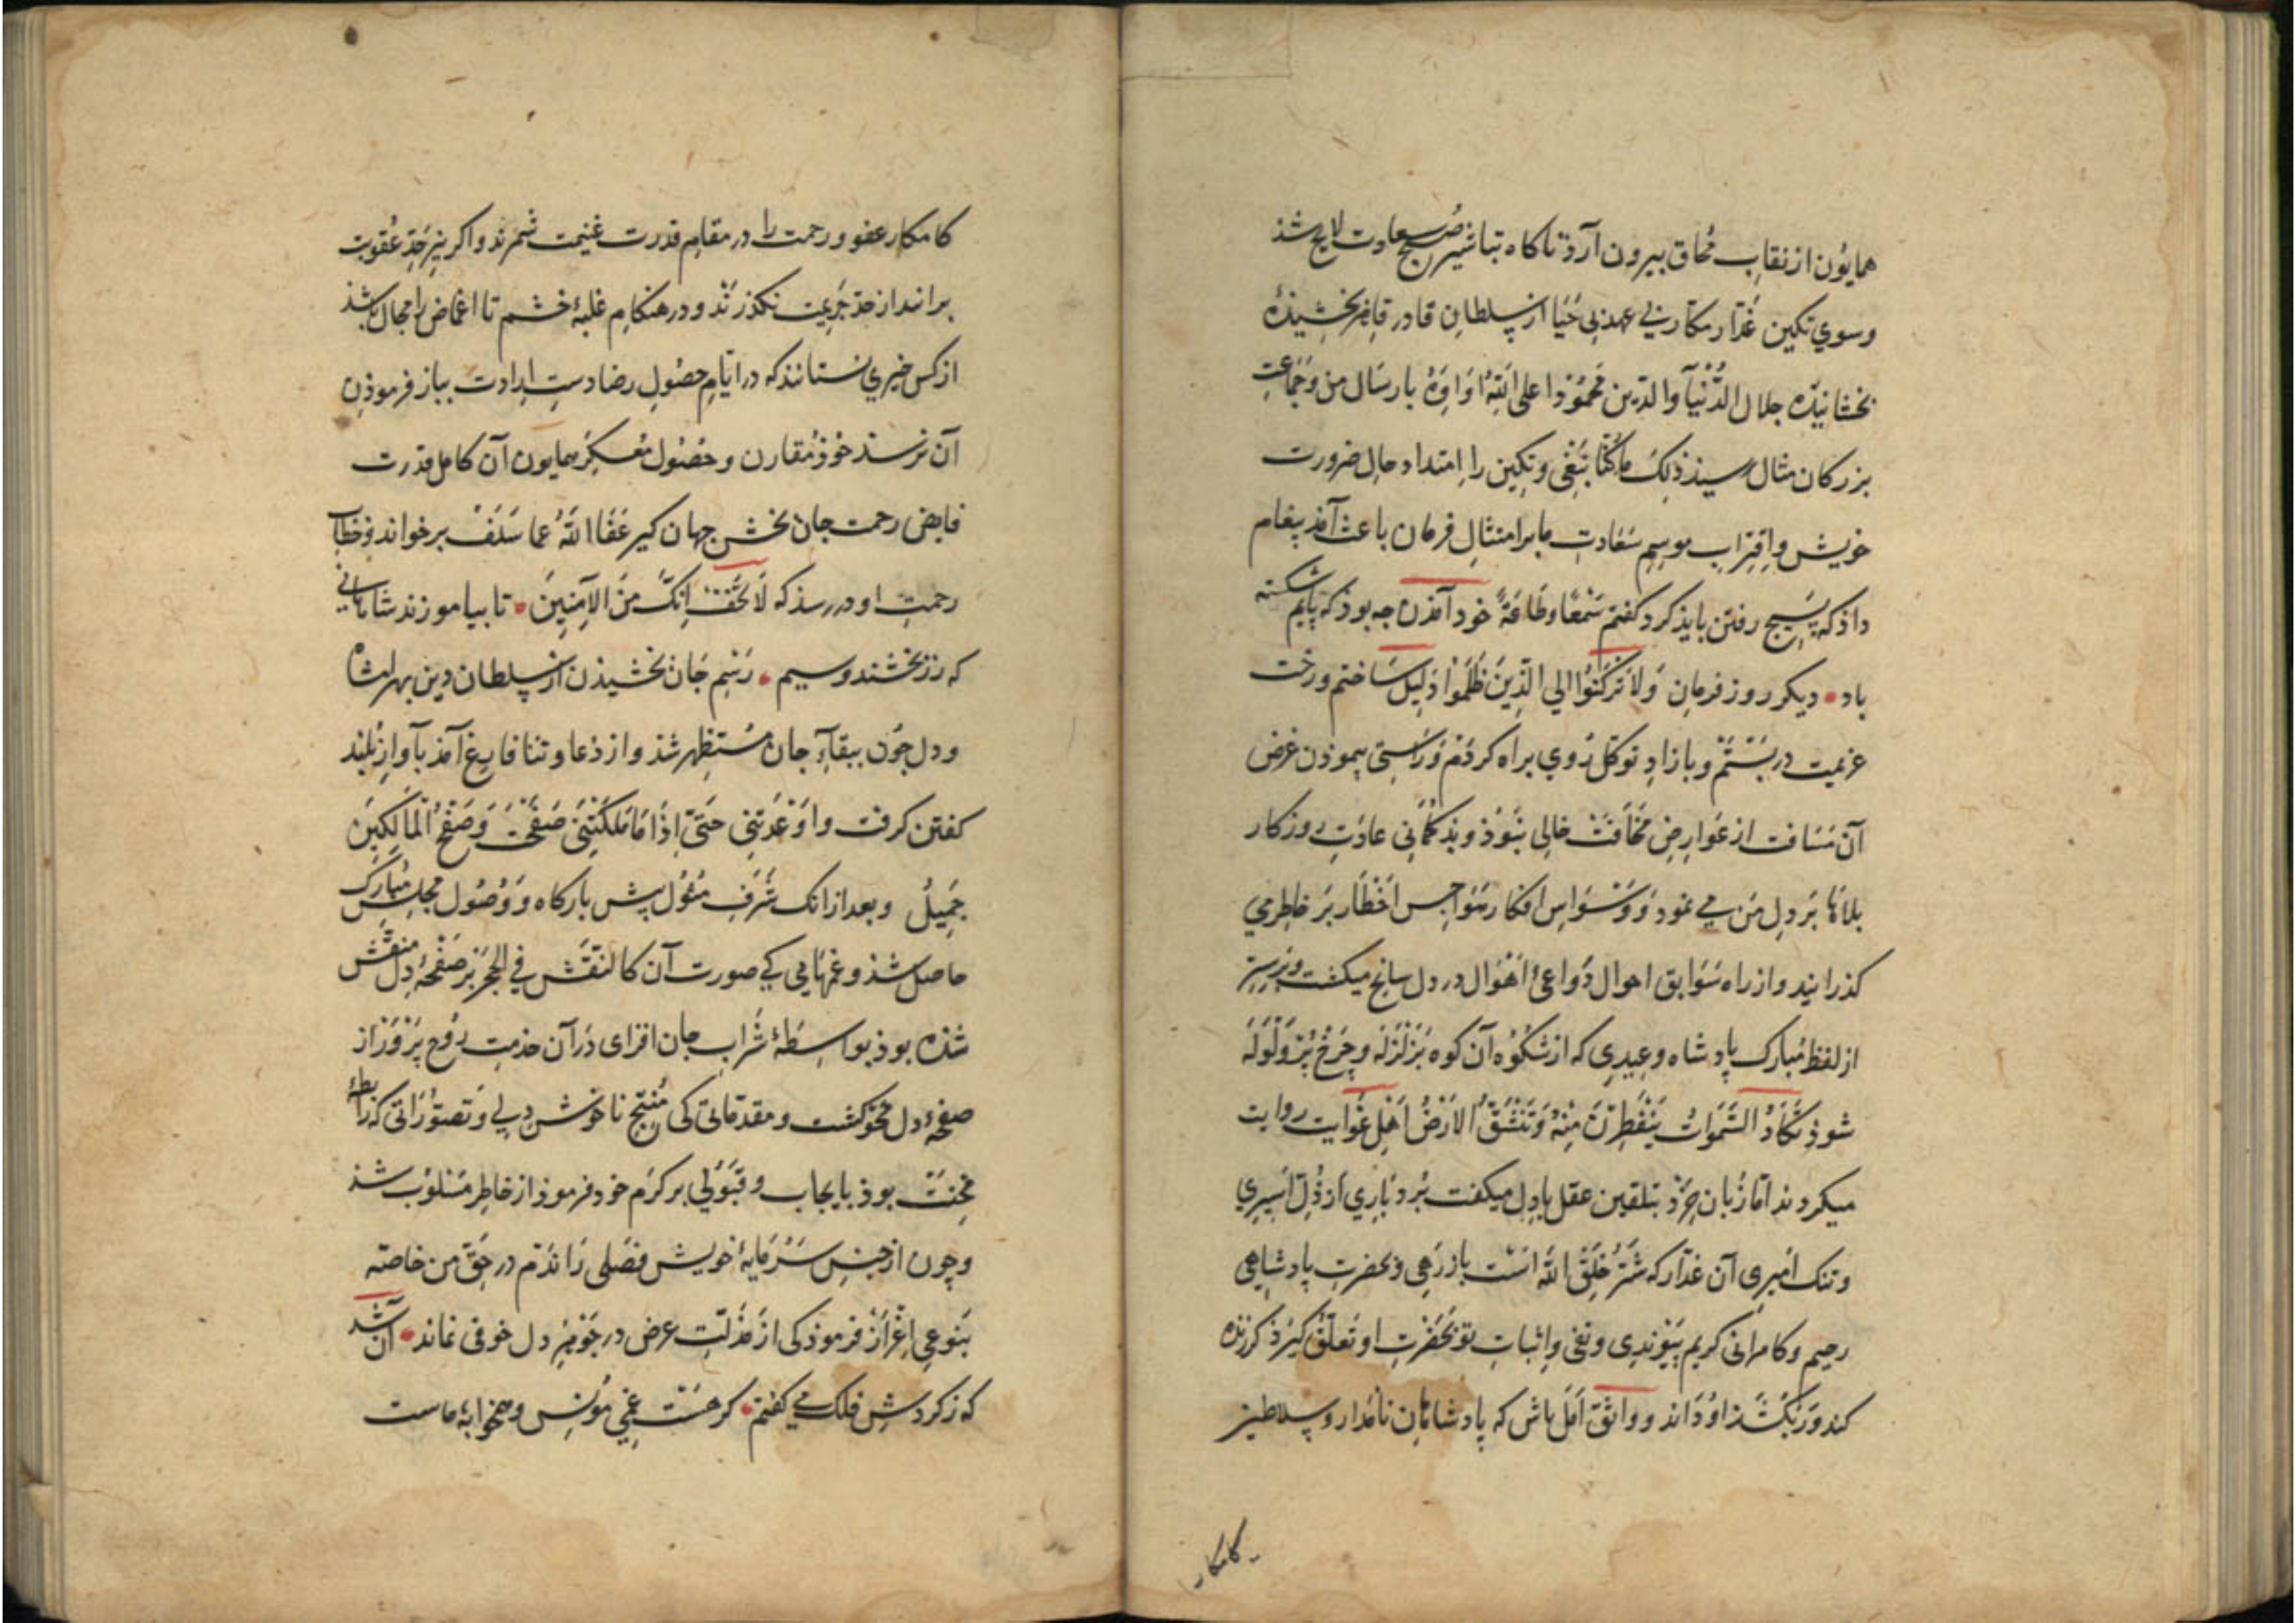 همایون از نقاب محاق بیرون آرد تا کاه تباشیر صبح سعادت لایح شذ
وسوی تکین غدّار مکّار بی عهد بی حیا از سلطان قادر قاهر بخشیذهٔ
بخشانیذه جلال الدُّنیآ والدّین محمود اعلی الله اوامره بارسال من وجماعت
بزرکان مثال رسیذ ذلک ما کنّا نبغی وتکین را امتداد حال ضرورت
خویش واقتراب موسم سعادت ما بر امتثال فرمان باعث آمذ پیغام
داذ که بسیج رفتن بایذ کرد کفتم سَمْعًا وطَاعَةً خود آمذن چه بوذ که پایم شکسته
باد • دیکر روز فرمان وَلاَ تَرْکَنُوا الي الّذینَ ظَلَمُوا دلیل ساختم ورخت
عزیمت در بستم وبازاد توکل روی براه کردم وراستی پیموذن عرض
آن مسافت از عوارض مخافت خالی نبوذ وبذ کمانی عادت روزکار
بلاها بر دل من می نمود ووسواس افکار هواجس اخطار بر خاطر می
کذرانید واز راه سوابق احوال دواعئ اهوال در دل سانح میکشت وبرسر
از لفظ مبارک پادشاه وعیدی که از شکوه آن کوه بزلزله وچرخ پُر ولوله
شوذ تَکَادُ السَّمَواتُ یَنْفَطِرْنَ مِنْهُ وَتَنْشَقُّ الاَرْضُ اهل غوایت روایت
میکردند امّا زبان خرد بتلقین عقل با دل میکفت برد باری از ذلّ اسیری
وننک امیری آن غدّار که شرّ خلق الله است باز رهی وبحضرت پادشاهی
رحیم وکامرانی کریم پیوندی ونفی واثبات تو بحضرت او تعلّق کیرذ کر زنده
کند ور بکشذ او داند وواثق امل باش که پادشاهان نامدار وسلاطین
کامکار
کامکار عفو ورحمت را در مقام قدرت غنیمت شمرند واکر نیز حدّ عقوبت
برانند از حدّ جریمت نکذرند ودر هنکام غلبهٔ خشم تا اغماض را مجال باشذ
از کس خیری نستانند که در ایّام حصول رضا دست ارادت بباز فرموذن
آن نرسد خوذ مقارن وحصول معسکر همایون آن کامل قدرت
فایض رحمت جان بخش جهان کیر عَفَا اللهُ عما سَلَفْ برخواند وخطاب
رحمت او در رسذ که لاَ تَخَفْ اِنَّکَ مِنَ الآمِنینَ • تا بیاموزند شاهانی
که زر بخشند وسیم • رسم جان بخشیذن از سلطان دین بهرامشاه
ودل چون ببقآء جان مستظهر شذ واز دعا وثنا فارغ آمذ بآواز بلند
کفتن کرفت واوْعَدْتَنی حَتّی اِذَا مَا مَلَکْتَنی صَفَحْتَ وَصَفْحُ الْمَالِکینَ
جَمِیلُ وبعد از انک شرف مثول پیش بارکاه ووصول مجلس مبارک
حاصل شذ وغمهایی کی صورت آن کالنقش فی الحجر بر صفحهٔ دل منقّش
شذه بوذ بواسطهٔ شراب جان افزای در آن خدمت روح پرور از
صفحهٔ دل محو کشت ومقدّماتی کی منتج ناخوش دلی وتصوّراتی که رابطهٔ
محنت بوذ بایجاب وقبولی بر کرم خود فرموذ از خاطر مسلوب شذ
وچون از جنس سرمایهٔ خویش فصلی راندم در حقّ من خاصّه
بنوعی اعزاز فرموذ کی از مذلّت عرض در جوهر دل خوفی نماند • آن شد
که ز کردش فلک می کفتم • کر هست غمی مونس وهمخوابهٔ ماست